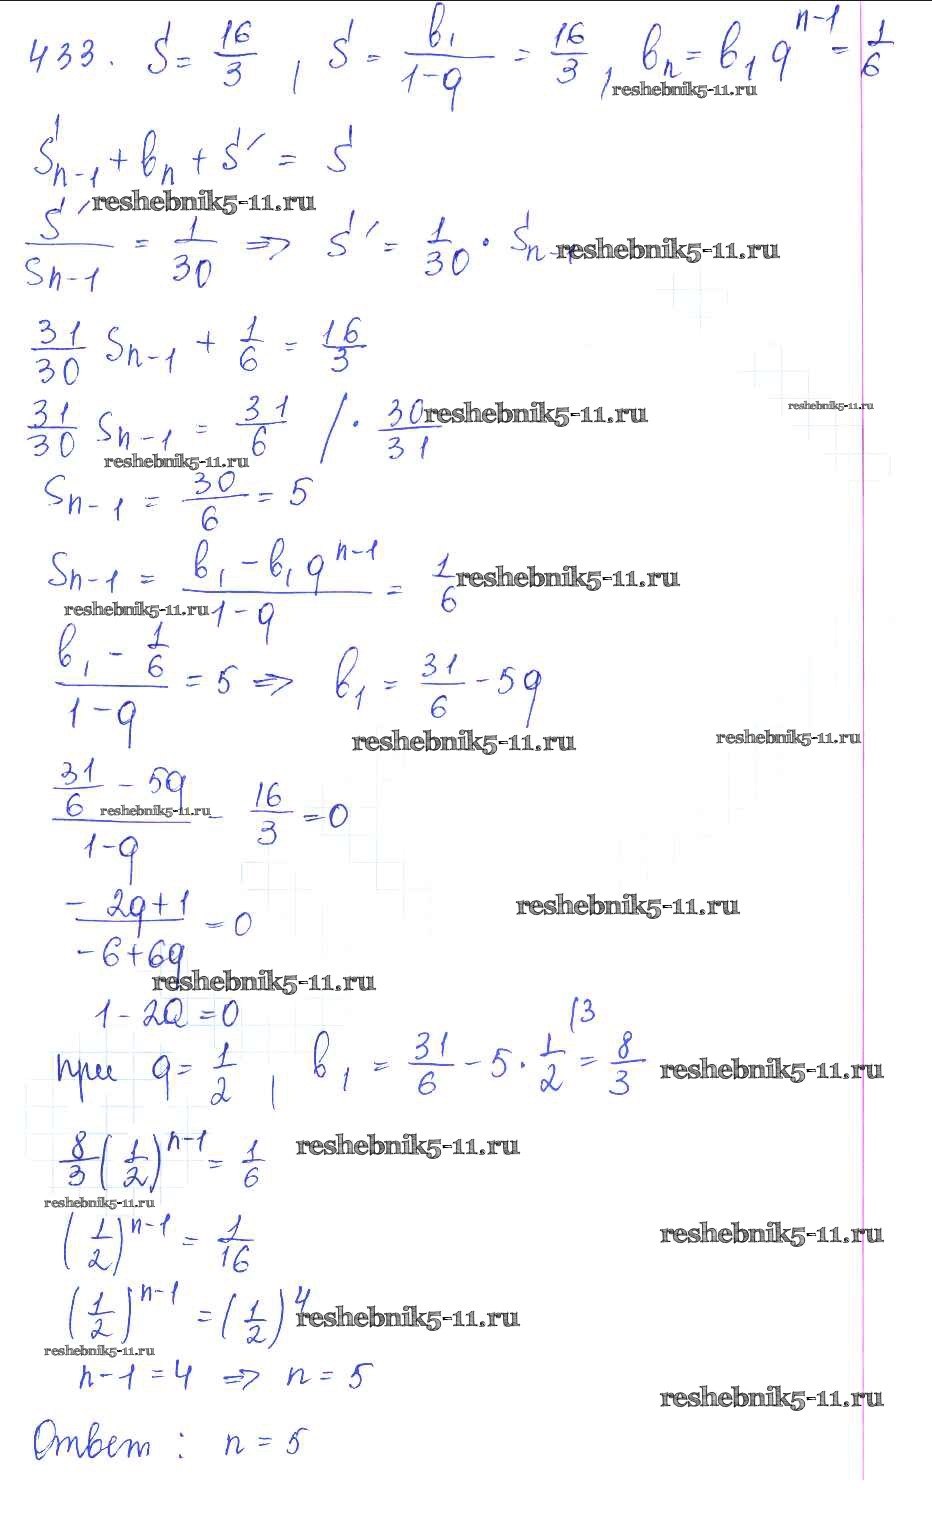 433. S = 16/3, S = b₁/(1-q) = 16/3, bₙ = b₁qⁿ⁻¹ = 1/6
reshebnik5-11.ru
Sₙ₋₁ + bₙ + S′ = S
reshebnik5-11.ru
S′/Sₙ₋₁ = 1/30 => S′ = 1/30 · Sₙ₋₁
reshebnik5-11.ru
31/30 Sₙ₋₁ + 1/6 = 16/3
31/30 Sₙ₋₁ = 31/6 / · 30/31
reshebnik5-11.ru
reshebnik5-11.ru
reshebnik5-11.ru
Sₙ₋₁ = 30/6 = 5
Sₙ₋₁ = (b₁ - b₁qⁿ⁻¹)/(1-q) = 1/6
reshebnik5-11.ru
reshebnik5-11.ru
(b₁ - 1/6)/(1-q) = 5 => b₁ = 31/6 - 5q
reshebnik5-11.ru
reshebnik5-11.ru
(31/6 - 5q)/(1-q) - 16/3 = 0
reshebnik5-11.ru
(-2q+1)/(-6+6q) = 0
reshebnik5-11.ru
reshebnik5-11.ru
1-2q = 0
при q = 1/2, b₁ = 31/6 - 5 · 1/2 (3 = 8/3
reshebnik5-11.ru
8/3 (1/2)ⁿ⁻¹ = 1/6
reshebnik5-11.ru
reshebnik5-11.ru
(1/2)ⁿ⁻¹ = 1/16
reshebnik5-11.ru
(1/2)ⁿ⁻¹ = (1/2)⁴
reshebnik5-11.ru
reshebnik5-11.ru
n-1 = 4 => n = 5
reshebnik5-11.ru
Ответ: n = 5